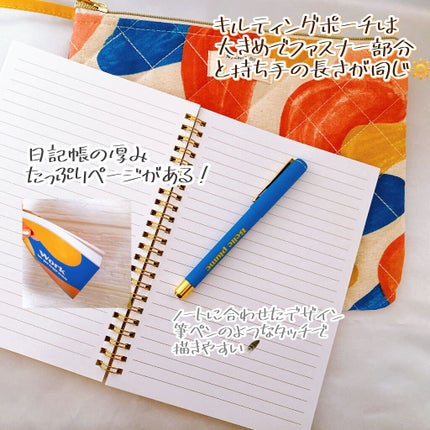 キルティングポーチは
大きめでファスナー部分
と持ち手の長さが同じ🔅
日記帳の厚み
たっぷりページがある！
Work
Belle Plume
ノートに合わせたデザイン
筆ペンのようなタッチで
描きやすい✒️